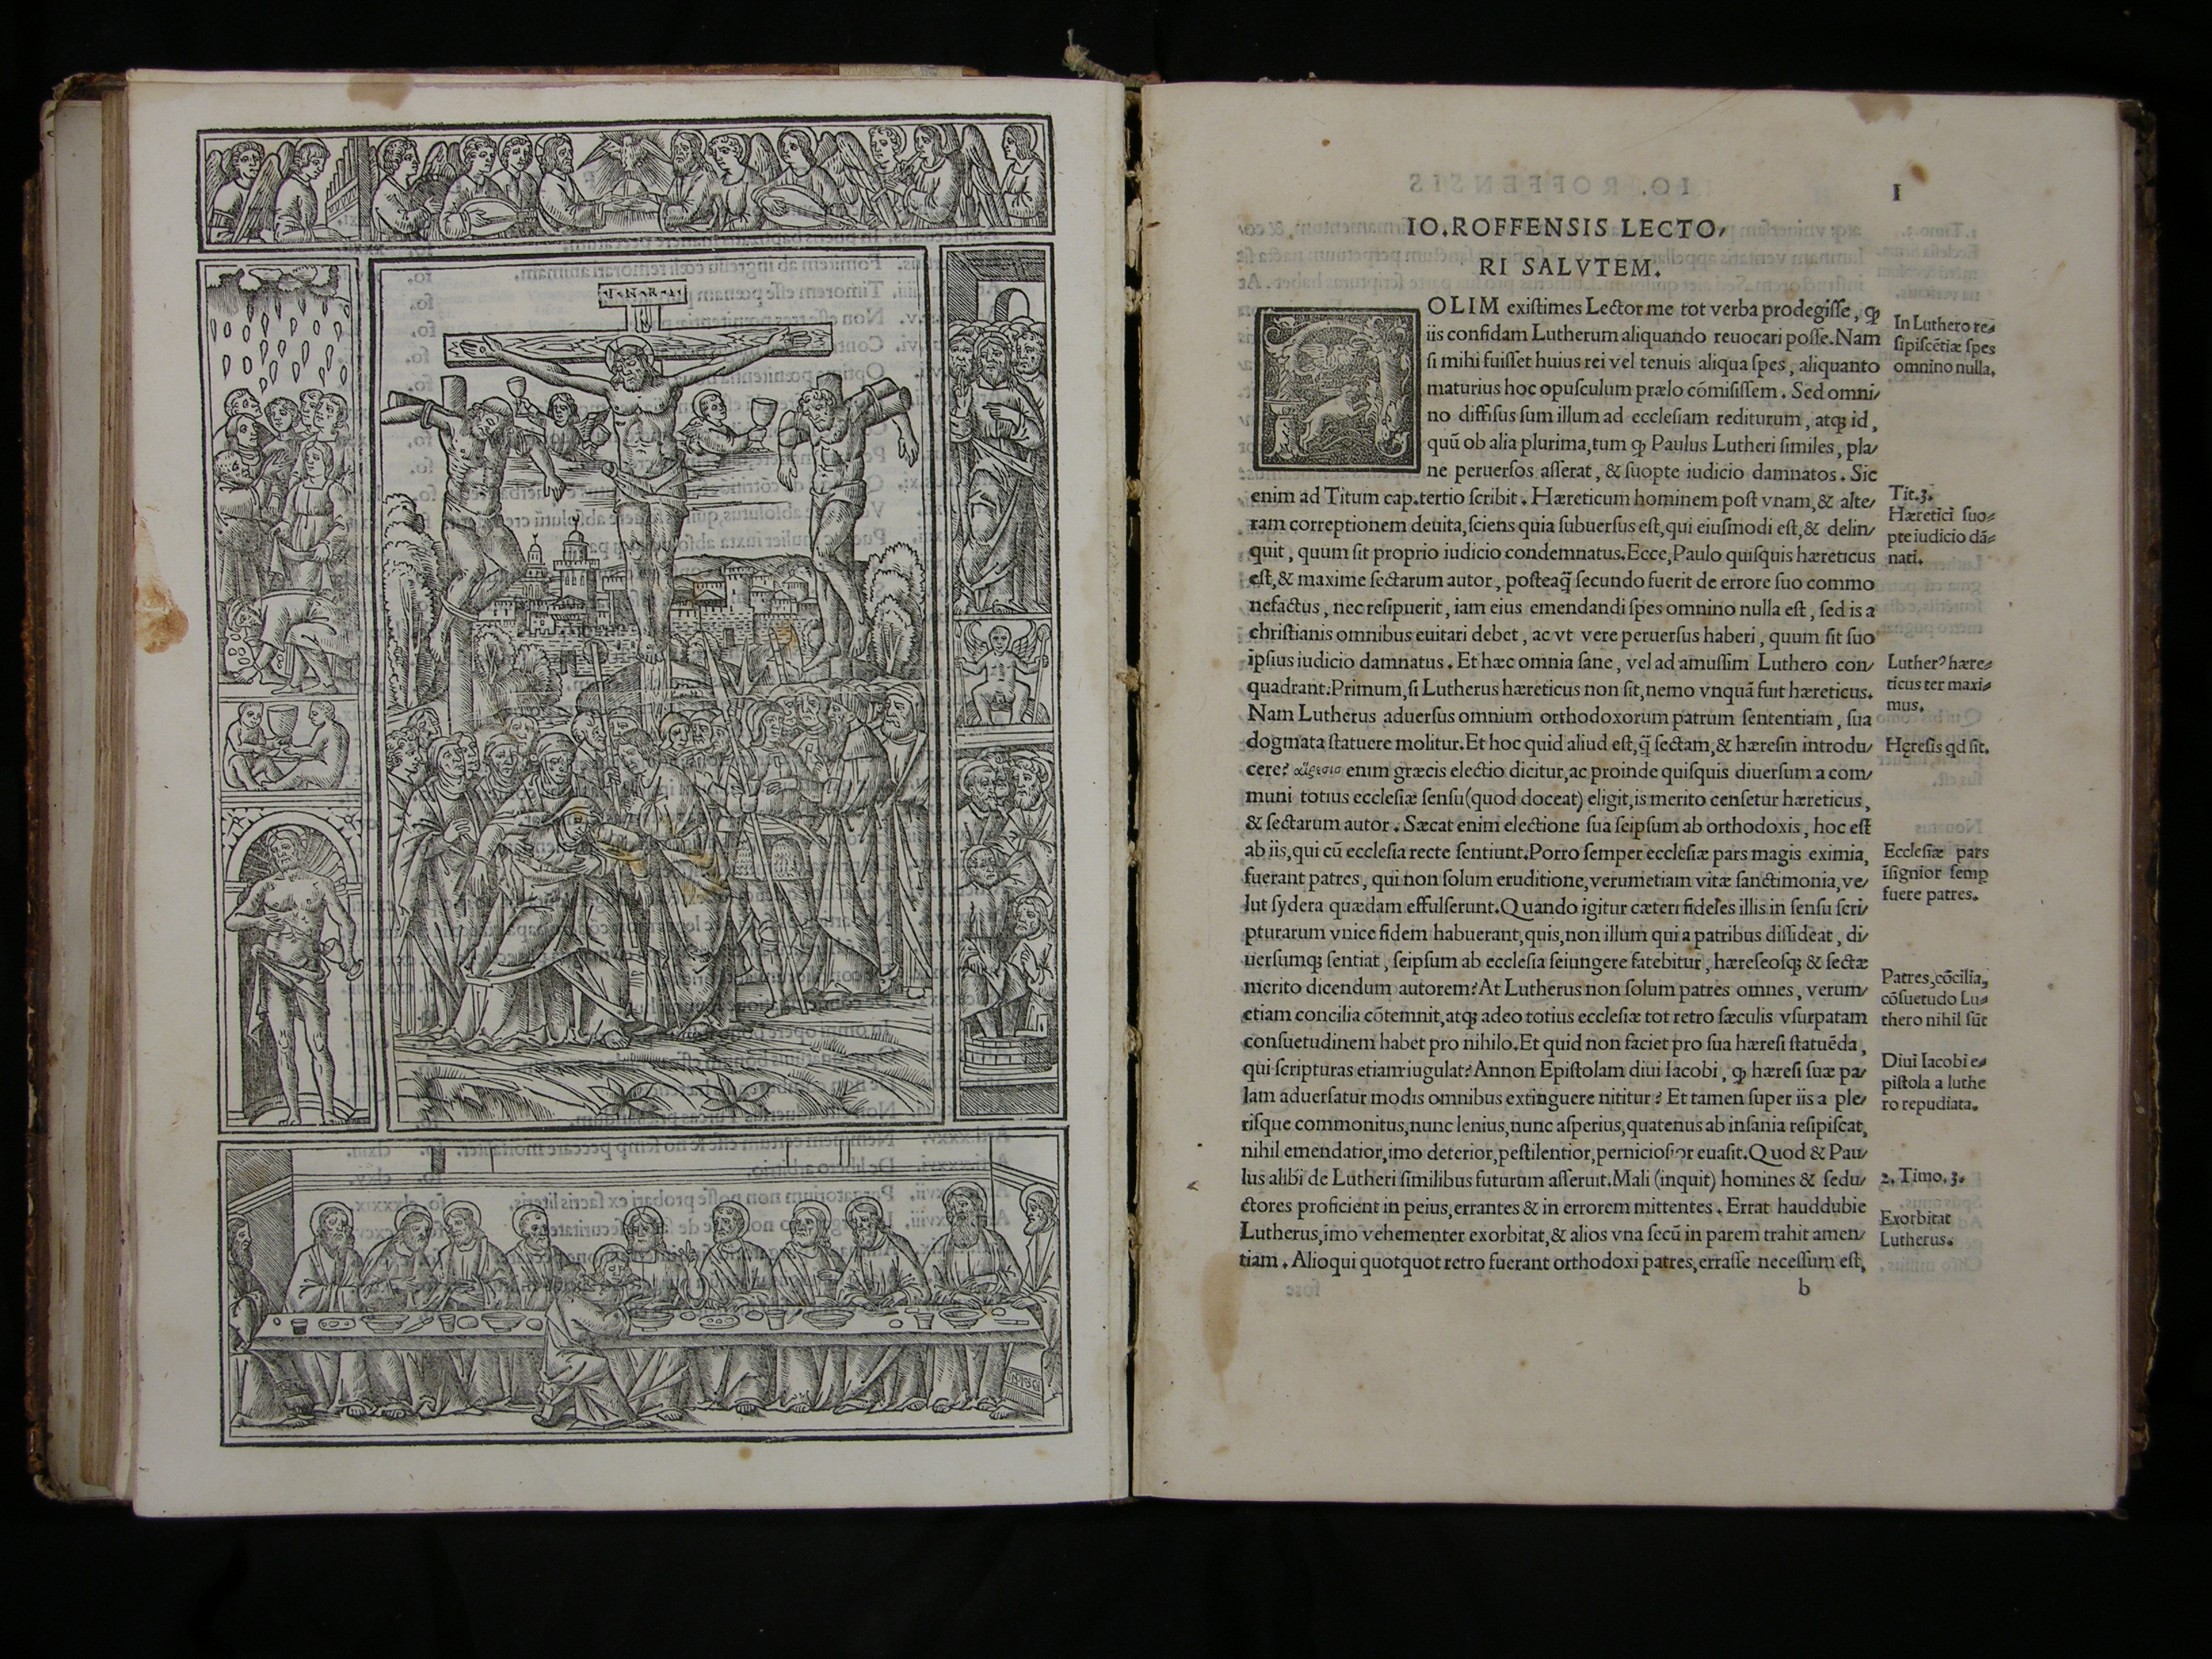 I·N·R·I
I
IO. ROFFENSIS LECTO,
RI SALVTEM.
OLIM existimes Lector me tot verba prodegisse, ꝙ
iis confidam Lutherum aliquando reuocari posse. Nam
si mihi fuisset huius rei vel tenuis aliqua spes, aliquanto
maturius hoc opusculum prælo cómisissem. Sed omni,
no diffisus sum illum ad ecclesiam rediturum, atq; id,
quū ob alia plurima, tum ꝙ Paulus Lutheri similes, pla,
ne peruersos asserat, & suopte iudicio damnatos. Sic
enim ad Titum cap. tertio scribit. Hæreticum hominem post vnam, & alte,
ram correptionem deuita, sciens quia subuersus est, qui eiusmodi est, & delin,
quit, quum sit proprio iudicio condemnatus. Ecce, Paulo quisquis hæreticus
est, & maxime sectarum autor, posteaq̄ secundo fuerit de errore suo commo
nefactus, nec resipuerit, iam eius emendandi spes omnino nulla est, sed is a
christianis omnibus euitari debet, ac vt vere peruersus haberi, quum sit suo
ipsius iudicio damnatus. Et hæc omnia sane, vel ad amussim Luthero con,
quadrant. Primum, si Lutherus hæreticus non sit, nemo vnquā fuit hæreticus.
Nam Lutherus aduersus omnium orthodoxorum patrum sententiam, sua
dogmata statuere molitur. Et hoc quid aliud est, q̄ sectam, & hæresin introdu,
cere? enim græcis electio dicitur, ac proinde quisquis diuersum a com,
muni totius ecclesiæ sensu (quod doceat) eligit, is merito censetur hæreticus,
& sectarum autor. Sæcat enim electione sua seipsum ab orthodoxis, hoc est
ab iis, qui cū ecclesia recte sentiunt. Porro semper ecclesiæ pars magis eximia,
fuerant patres, qui non solum eruditione, verumetiam vitæ sanctimonia, ve,
lut sydera quædam effulserunt. Quando igitur cæteri fideles illis in sensu scri,
pturarum vnice fidem habuerant, quis, non illum qui a patribus dissideat, di,
uersumq; sentiat, seipsum ab ecclesia seiungere fatebitur, hæreseosq; & sectæ
merito dicendum autorem? At Lutherus non solum patres omnes, verum,
etiam concilia cōtemnit, atq; adeo totius ecclesiæ tot retro sæculis vsurpatam
consuetudinem habet pro nihilo. Et quid non faciet pro sua hæresi statuēda,
qui scripturas etiam iugulat? Annon Epistolam diui Iacobi, ꝙ hæresi suæ pa,
lam aduersatur modis omnibus extinguere nititur? Et tamen super iis a ple,
risque commonitus, nunc lenius, nunc asperius, quatenus ab insania resipiscat,
nihil emendatior, imo deterior, pestilentior, perniciosior euasit. Quod & Pau,
lus alibi de Lutheri similibus futurum asseruit. Mali (inquit) homines & sedu,
ctores proficient in peius, errantes & in errorem mittentes. Errat hauddubie
Lutherus, imo vehementer exorbitat, & alios vna secū in parem trahit amen,
tiam. Alioqui quotquot retro fuerant orthodoxi patres, errasse necessum est,
b
In Luthero re=
sipiscētiæ spes
omnino nulla.
Tit. 3.
Hæretici suo=
pte iudicio dā=
nati.
Lutherꝰ hære=
ticus ter maxi=
mus.
Hęresis qd sit.
Ecclesiæ pars
īsignior semp
fuere patres.
Patres, cōcilia,
cōsuetudo Lu=
thero nihil sūt
Diui Iacobi e=
pistola a luthe
ro repudiata.
2. Timo. 3.
Exorbitat
Lutherus.